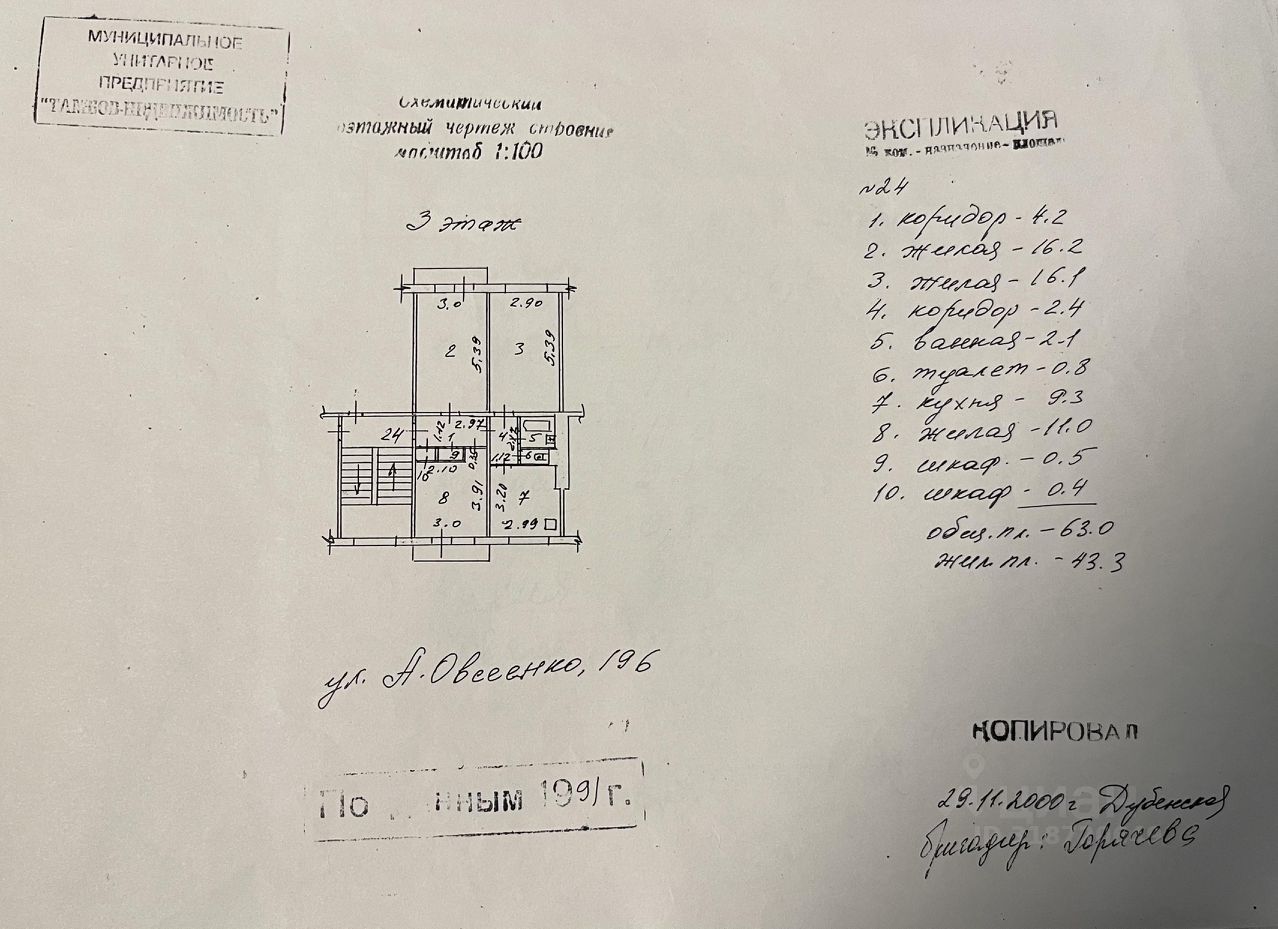 МУНИЦИПАЛЬНОЕ
УНИТАРНОЕ
ПРЕДПРИЯТИЕ
"ТАМБОВ-НЕДВИЖИМОСТЬ"
Схематический
поэтажный чертеж строения
масштаб 1:100
3 этаж
3.0
2.90
2
5.39
3
5.39
24
1.12
2.97
1
4
5
9
0.35
1.12
6
10
2.10
8
3.91
3.20
7
3.0
2.99
ул. А. Овсеенко, 196
По данным 1991 г.
ЭКСПЛИКАЦИЯ
№ ком. - назначение - площадь
№24
1. коридор - 4.2
2. жилая - 16.2
3. жилая - 16.1
4. коридор - 2.4
5. ванная - 2.1
6. туалет - 0.8
7. кухня - 9.3
8. жилая - 11.0
9. шкаф - 0.5
10. шкаф - 0.4
общ. пл. - 63.0
жил. пл. - 43.3
КОПИРОВАЛ
29.11.2000 г Дубенская
бригадир: Горячева